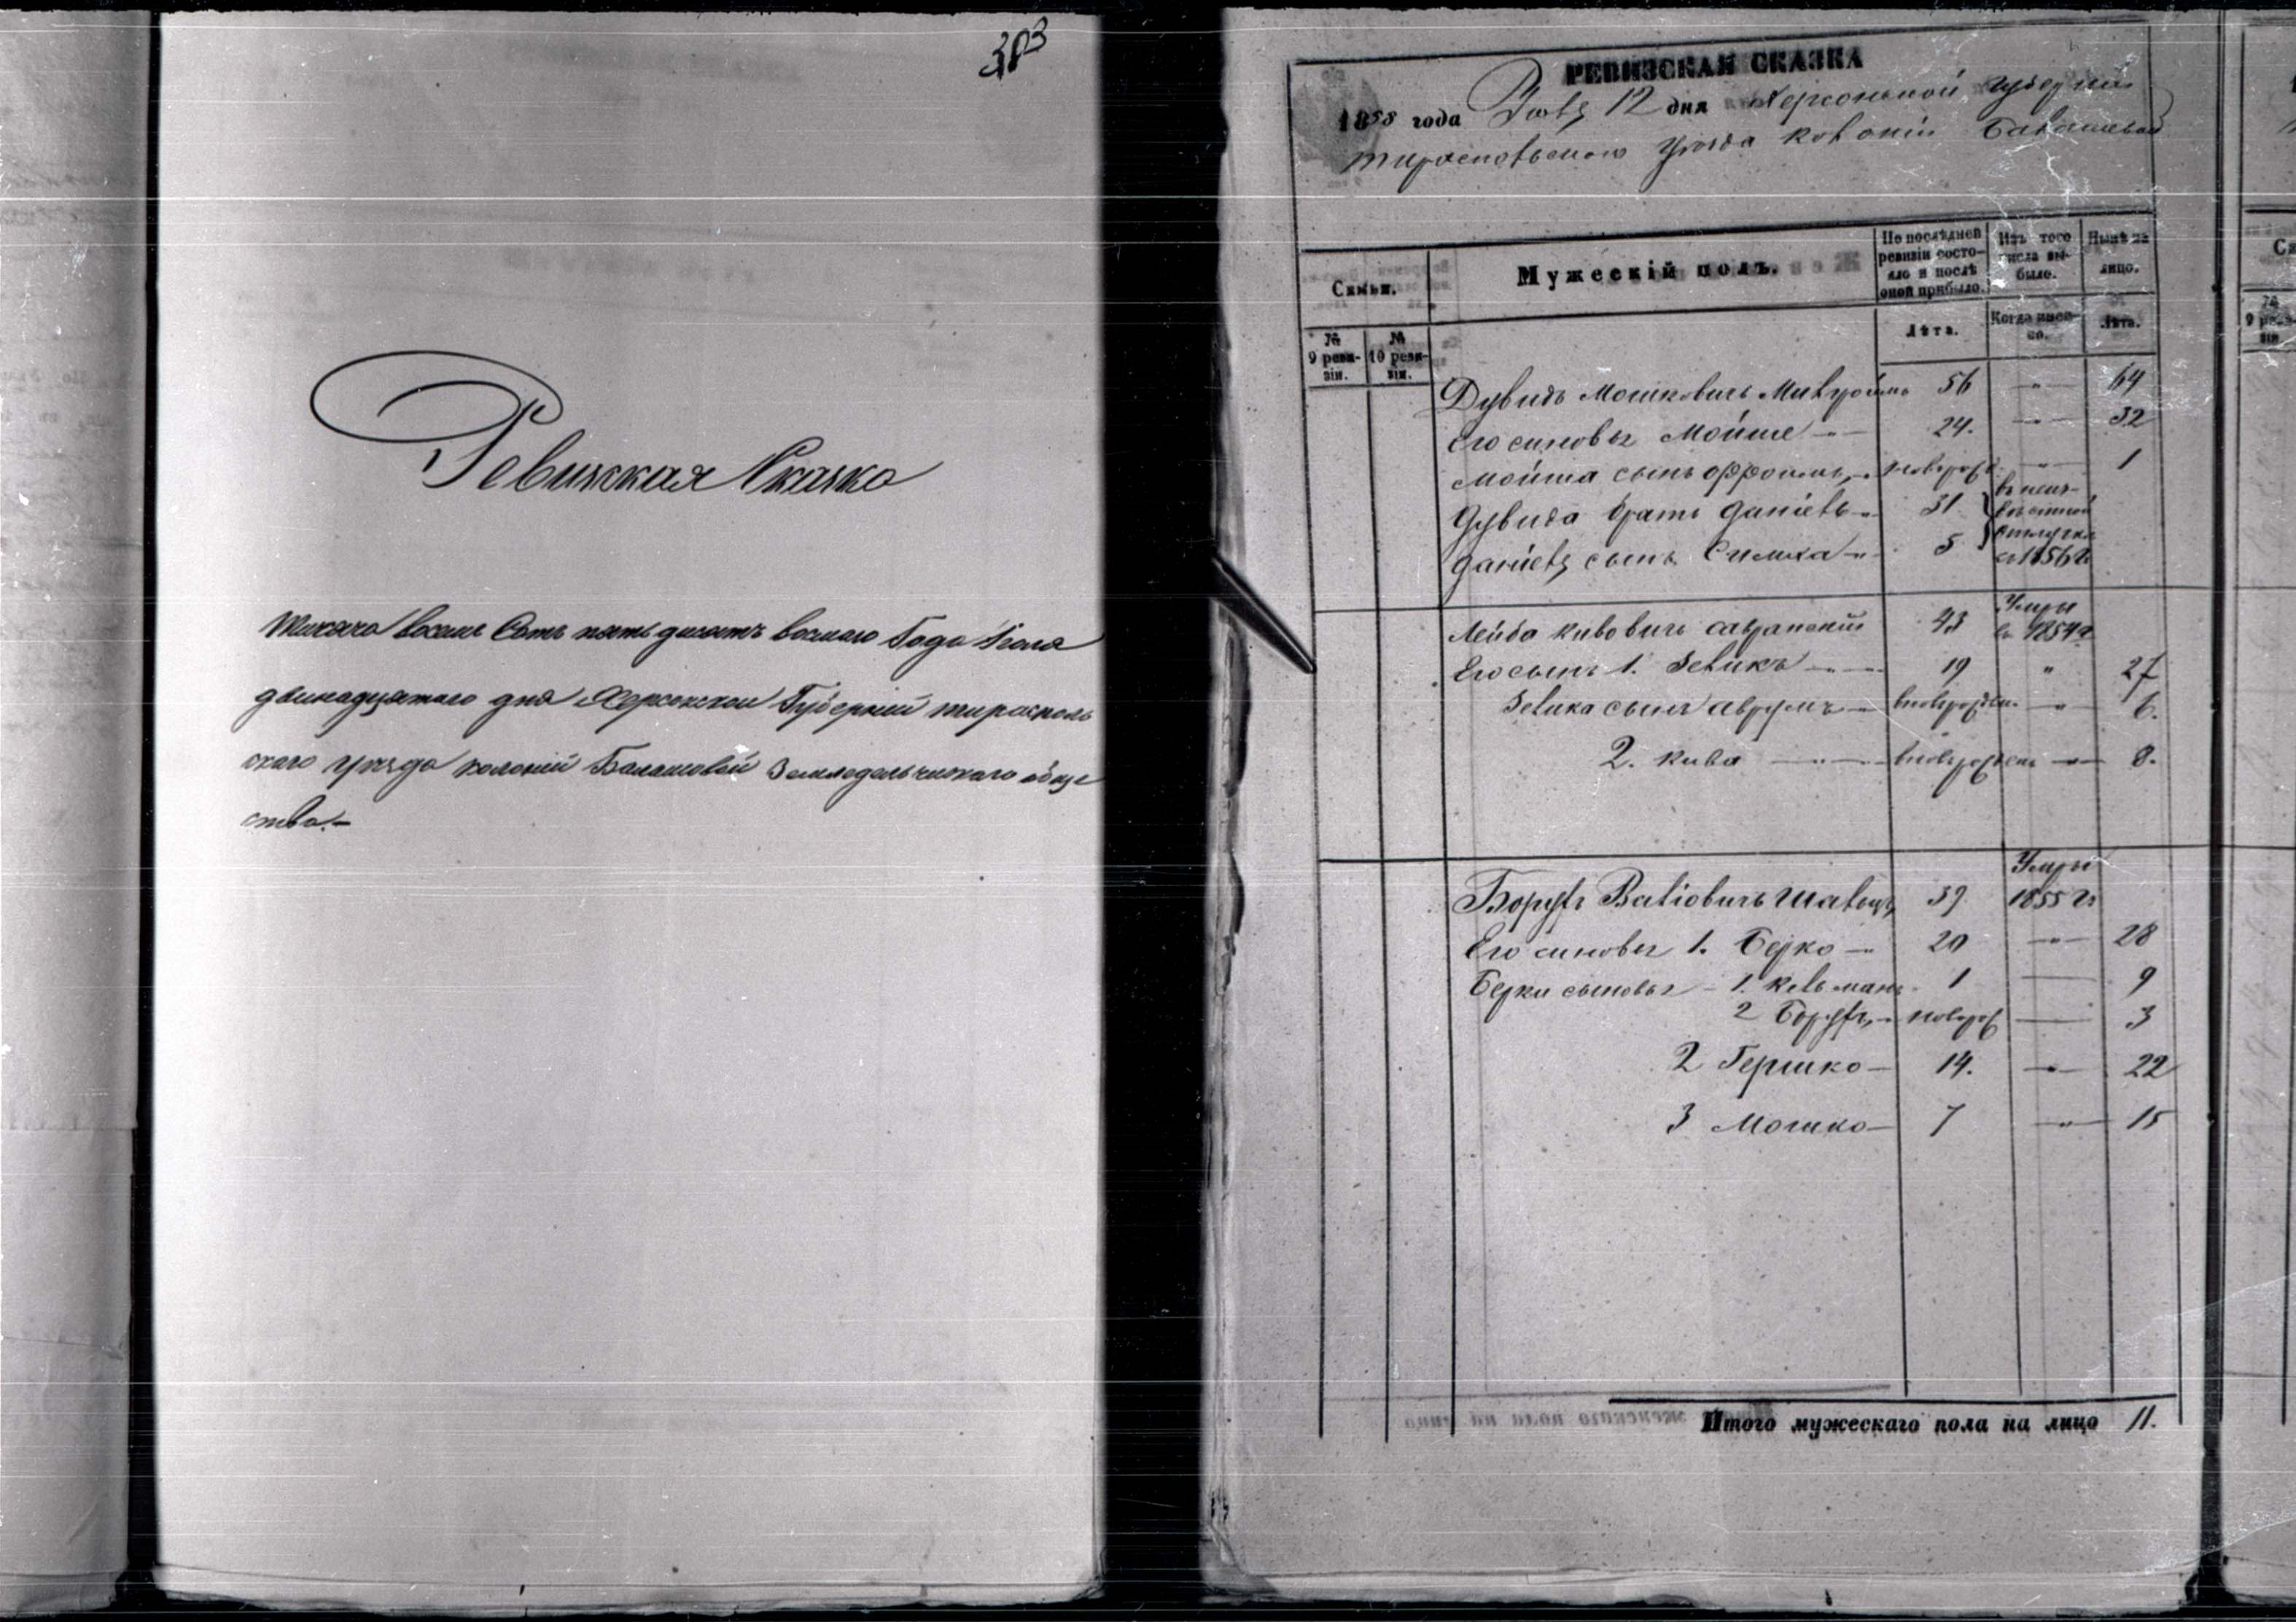 303
Ревизская Сказка
Тисяча восемь Сотъ пять десятъ восмаго Года Июля
двинадцятаго дня Херсонской Губерній тирасполь
скаго уезда колоній Балашовой Земледельчискаго обще
ства.-
РЕВИЗСКАЯ СКАЗКА
1858 года Июля 12 дня Херсонской губерній
тираспольскаго уезда колоній Балашевой
Семьи.
№ 9 реви-зіи.
№ 10 реви-зіи.
Мужескій полъ.
По послѣдней ревизіи состо-яло и послѣ оной прибыло.
Изъ того числа вы-было.
Нынѣ на лицо.
Лѣта.
Когда имен-но.
Лѣта.
Дувидъ Мошковичъ 56 — " — 64
Его синовья Мойше — " — 24. — " — 32
Мойша сынъ Фроимъ — " новорож — " — 1
Дувида братъ Даніель — " 31 } въ неиз-вѣстной отлучкѣ съ 1856 г
Даніеля сынъ Симха — " 5
Лейба Кивовичъ Савранский 43 Умръ въ 1854 г
Его сынъ 1. Зеликъ — " — 19 " 27
Зелика сынъ Аврумъ — новорожден — " — 6.
2. Кива — " — новорожден — " — 8.
Борухъ Шавецъ 39 Умръ 1855 г
Его синовья 1. Берко — " 20 — " — 28
Берки сыновья — 1. Кельманъ 1 — 9
2 Борухъ — новорож — 3
2 Гершко — 14. — " — 22
3 Мошко — 7 — " — 15
Итого мужескаго пола на лицо 11.